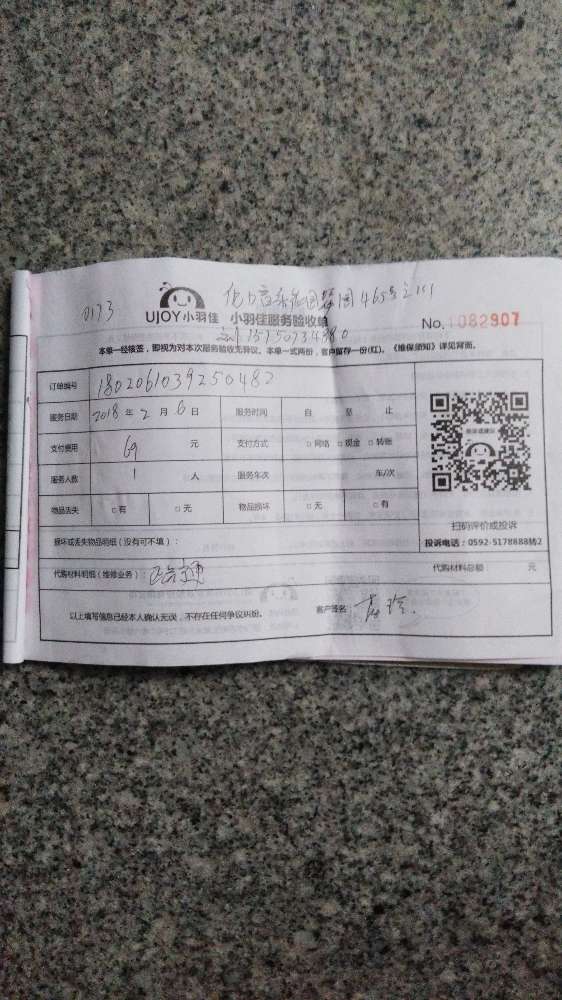 0173
465号之151
UJOY小羽佳 小羽佳服务验收单 No. 1082907
本单一经核签,即视为对本次服务验收无异议。本单一式两份,客户留存一份(红)。《维保须知》详见背面。
订单编号 1802061039250482
服务日期 2018 年 2 月 6 日 服务时间 自 至 止
支付费用 69 元 支付方式 □网络 □现金 □转账
服务人数 1 人 服务车次 车/次
物品丢失 □有 □无 物品损坏 □无 □有
扫码评价或投诉
投诉电话:0592-5178888转2
损坏或丢失物品明细(没有可不填):
代购材料明细(维修业务): 代购材料总额 元
以上填写信息已经本人确认无误,不存在任何争议纠纷。 客户签名: